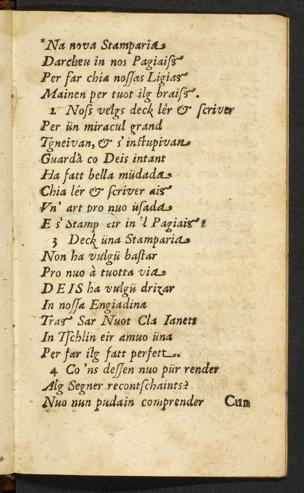 *Na nova Stamparia
Darcheu in nos Pagiaiſs
Per far chia noſſas Ligias
Mainen per tuot ilg braiſs.
2 Noſs velgs deck lér & ſcriver
Per ün miracul grand
Tgneivan, & s' inſtupivan
Guardà co Deis intant
Ha fatt bella müdada
Chia lér & ſcriver ais
Vn' art pro nuo üſada
E s' Stamp eir in 'l Pagiais!
3 Deck üna Stamparia
Non ha vulgü baſtar
Pro nuo à tuotta via
DEIS ha vulgü drizar
In noſſa Engiadina
Tras Sar Nuot Cla Ianets
In Tſchlin eir amuo üna
Per far ilg fatt perfett.
4 Co 'ns deſſen nuo pür render
Alg Segner recontſchaints?
Nuo nun pudain comprender Cun